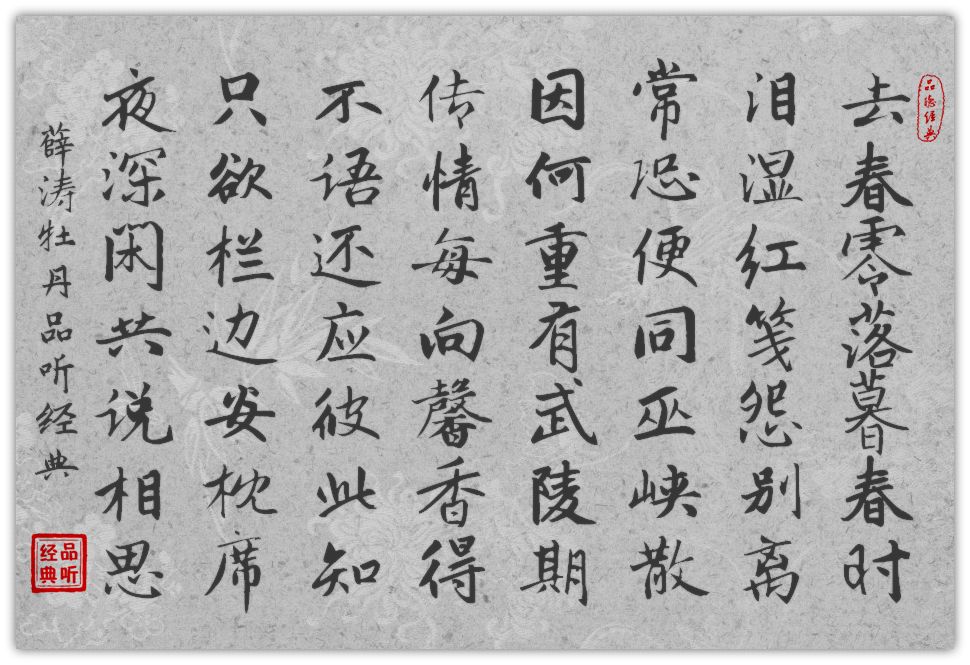 品聴经典
去春零落暮春时
泪湿红笺怨别离
常恐便同巫峡散
因何重有武陵期
传情每向馨香得
不语还应彼此知
只欲栏边安枕席
夜深闲共说相思
薛涛牡丹品听经典
品听经典